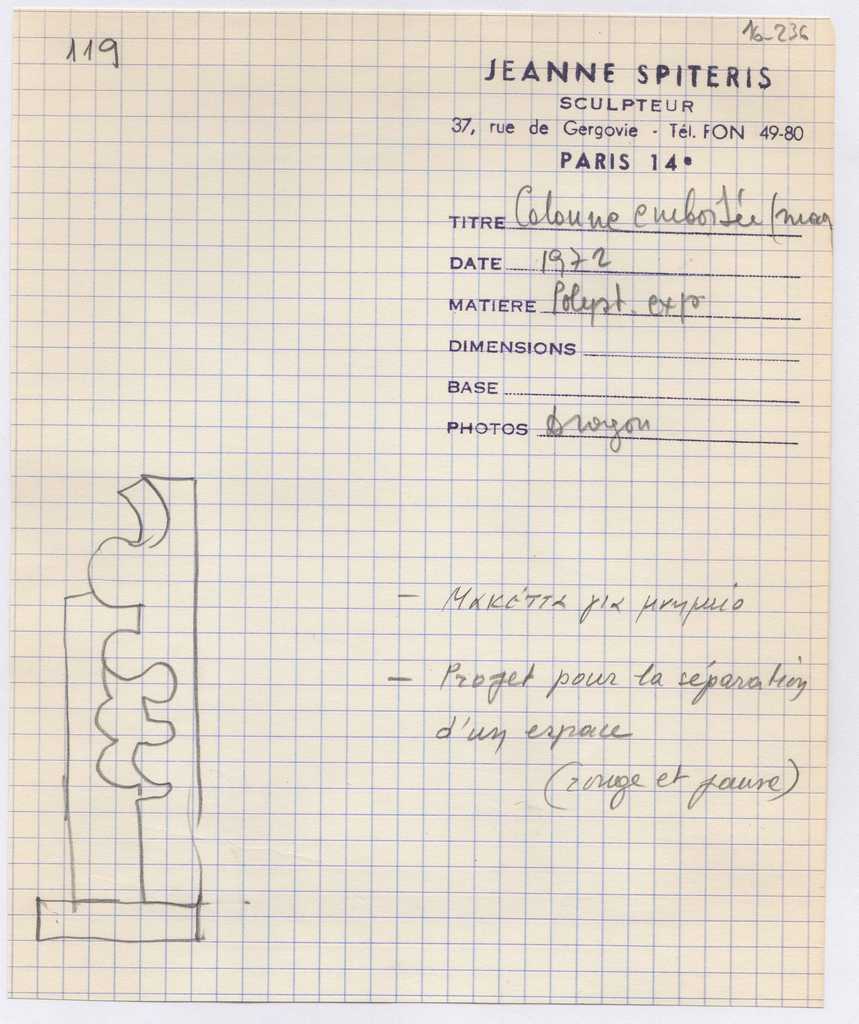 119
16-236
JEANNE SPITERIS
SCULPTEUR
37, rue de Gergovie - Tél. FON 49-80
PARIS 14e
TITRE Colonne emboitée (maq
DATE 1972
MATIÈRE Polyst. exp
DIMENSIONS
BASE
PHOTOS Dragon
- Μακέττα για μνημείο
- Projet pour la séparation
d'un espace
(rouge et jaune)